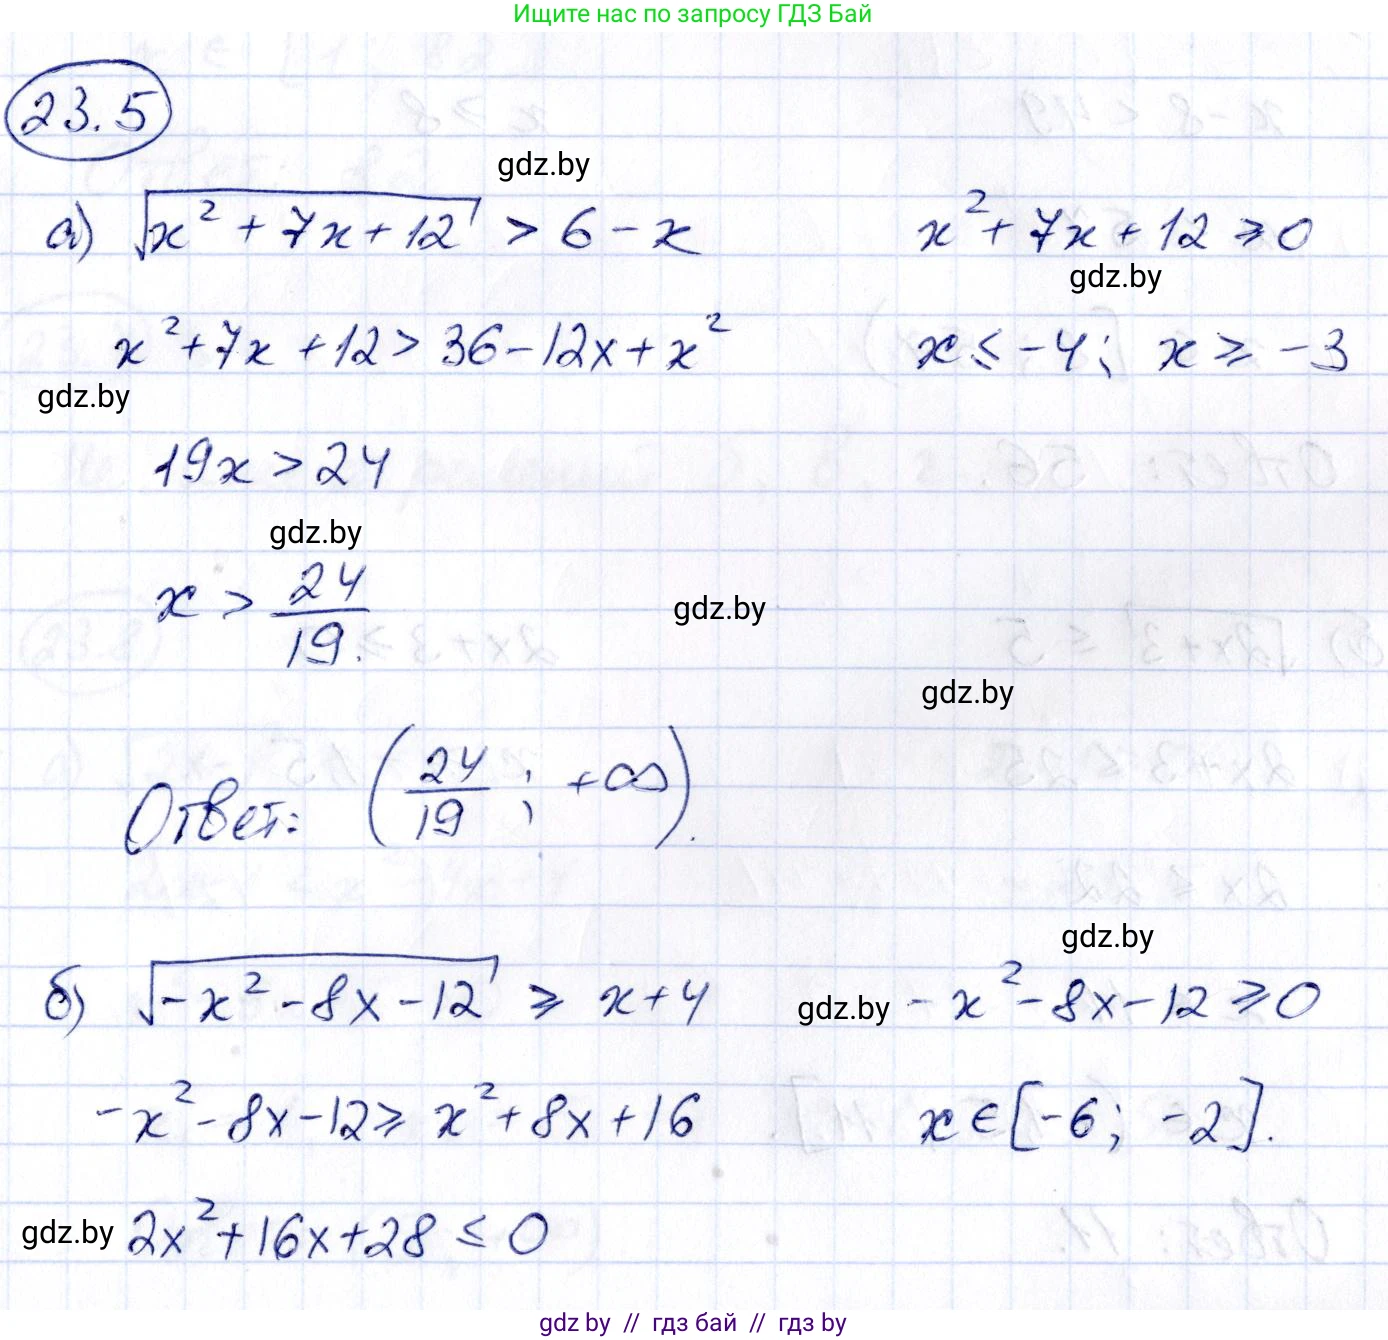 Ищите нас по запросу ГДЗ Бай
23.5
gdz.by
а) √(x² + 7x + 12) > 6 - x
x² + 7x + 12 ≥ 0
gdz.by
x² + 7x + 12 > 36 - 12x + x²
x ≤ -4; x ≥ -3
gdz.by
19x > 24
gdz.by
x > 24/19.
gdz.by
gdz.by
Ответ: (24/19; +∞).
gdz.by
б) √(-x² - 8x - 12) ≥ x + 4
gdz.by
-x² - 8x - 12 ≥ 0
-x² - 8x - 12 ≥ x² + 8x + 16
x ∈ [-6; -2].
gdz.by
2x² + 16x + 28 ≤ 0
gdz.by // гдз бай // гдз by